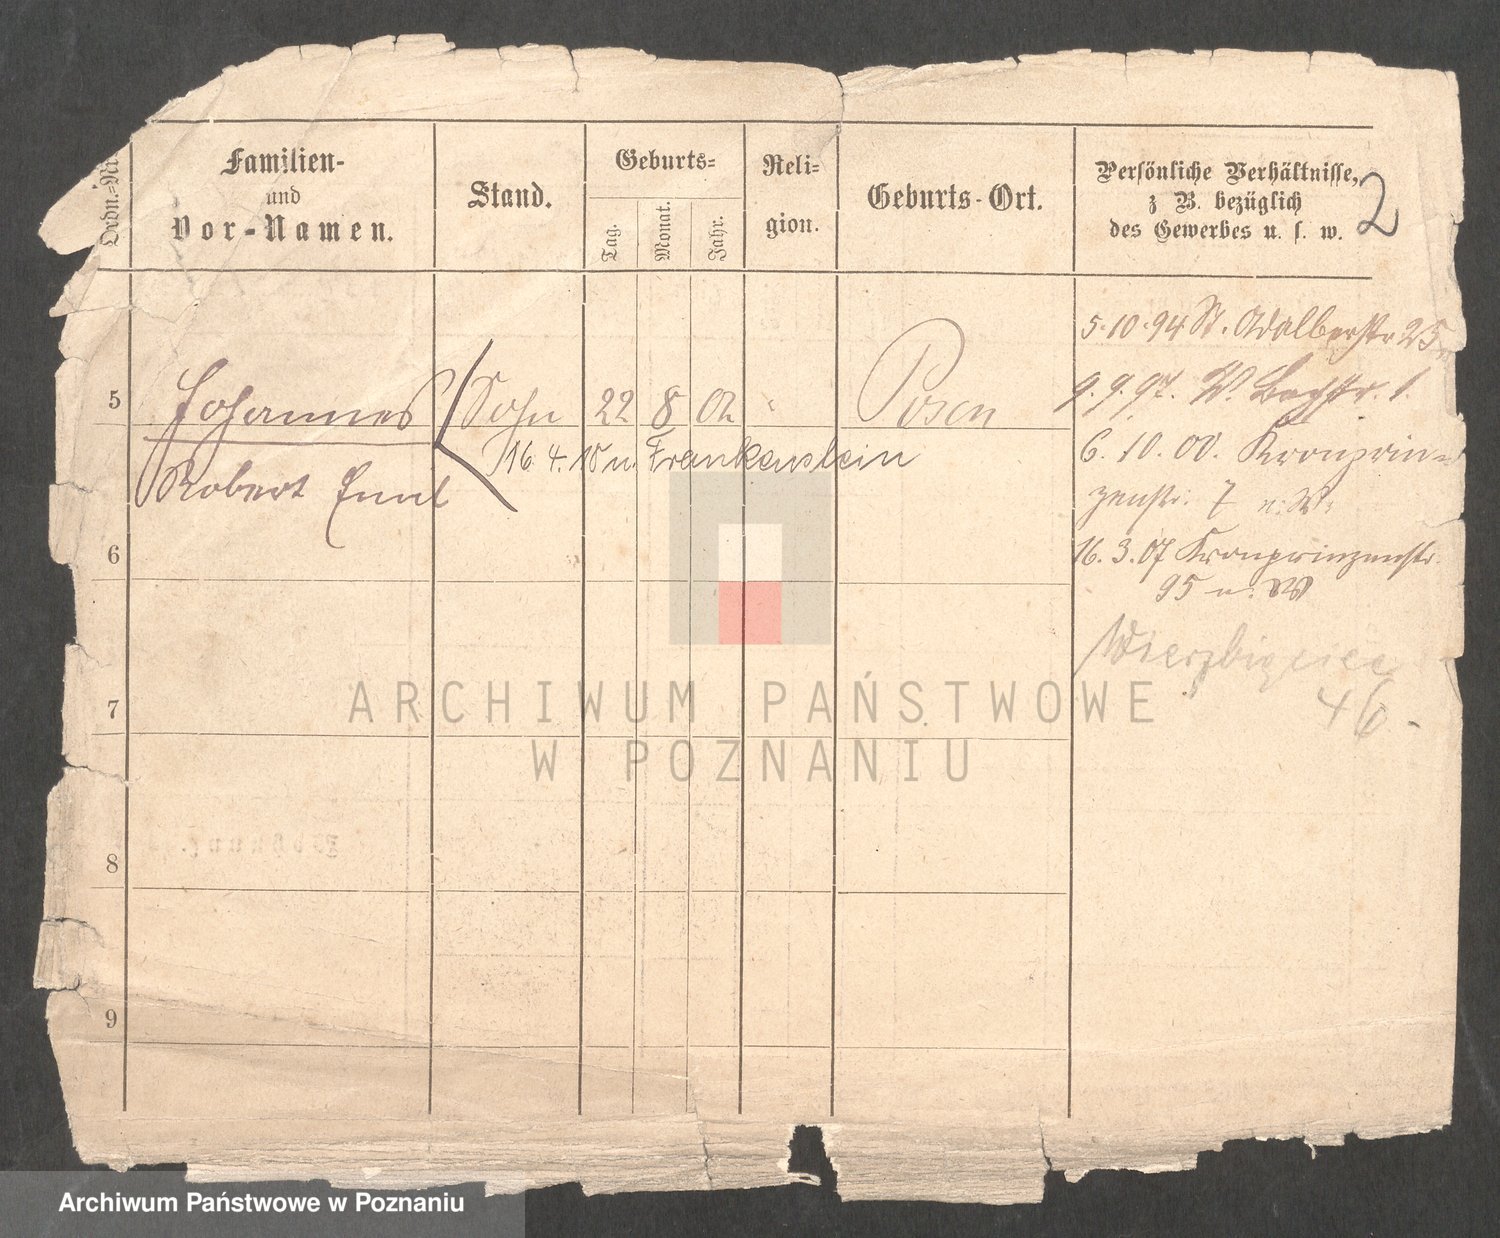 Ordn.=Nr.
Familien-
und
Vor-Namen.
Stand.
Geburts=
Tag.
Monat.
Jahr.
Reli=
gion.
Geburts-Ort.
Persönliche Verhältnisse,
z B. bezüglich
des Gewerbes u. s. w.
2
5 Johannes Sohn 22 8 02 " Posen
Robert Emil
16. 4. 10 n. Frankenstein
5.10.94 St. Adalbertstr 25
9.9.97. W. 1.
6.10.00. Kronprin=
zenstr. 7 n. W.
16.3.07 Kronprinzenstr.
95 n. W
Wierzbięcice
46.
6
7
8
9
Wohnung.
ARCHIWUM PAŃSTWOWE
W POZNANIU
Archiwum Państwowe w Poznaniu